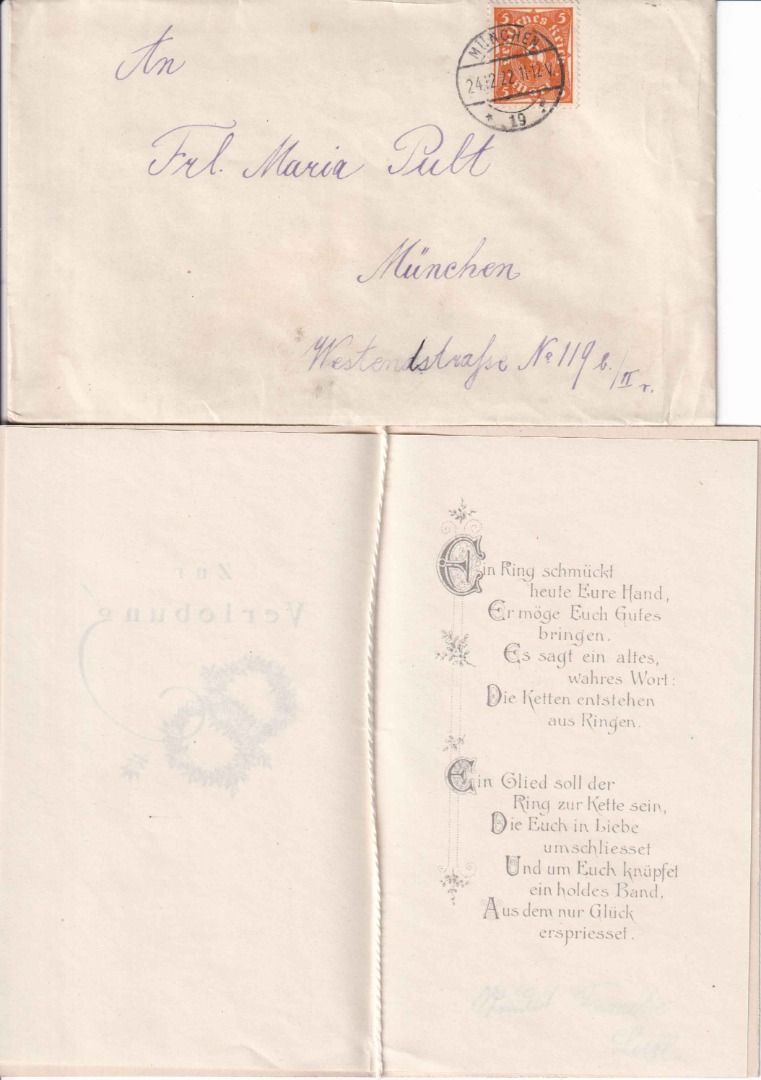 An
Frl. Maria Pult
München
Westendstraße No 119 b/II r.
5 5
Deutsches Reich
5 5
MÜNCHEN
24.12.22.11-12 V.
* 19 *
Zur
Verlobung
Ein Ring schmückt
heute Eure Hand,
Er möge Euch Gutes
bringen.
Es sagt ein altes,
wahres Wort:
Die Ketten entstehen
aus Ringen.
Ein Glied soll der
Ring zur Kette sein,
Die Euch in Liebe
umschliesset
Und um Euch knüpfet
ein holdes Band,
Aus dem nur Glück
erspriesset.